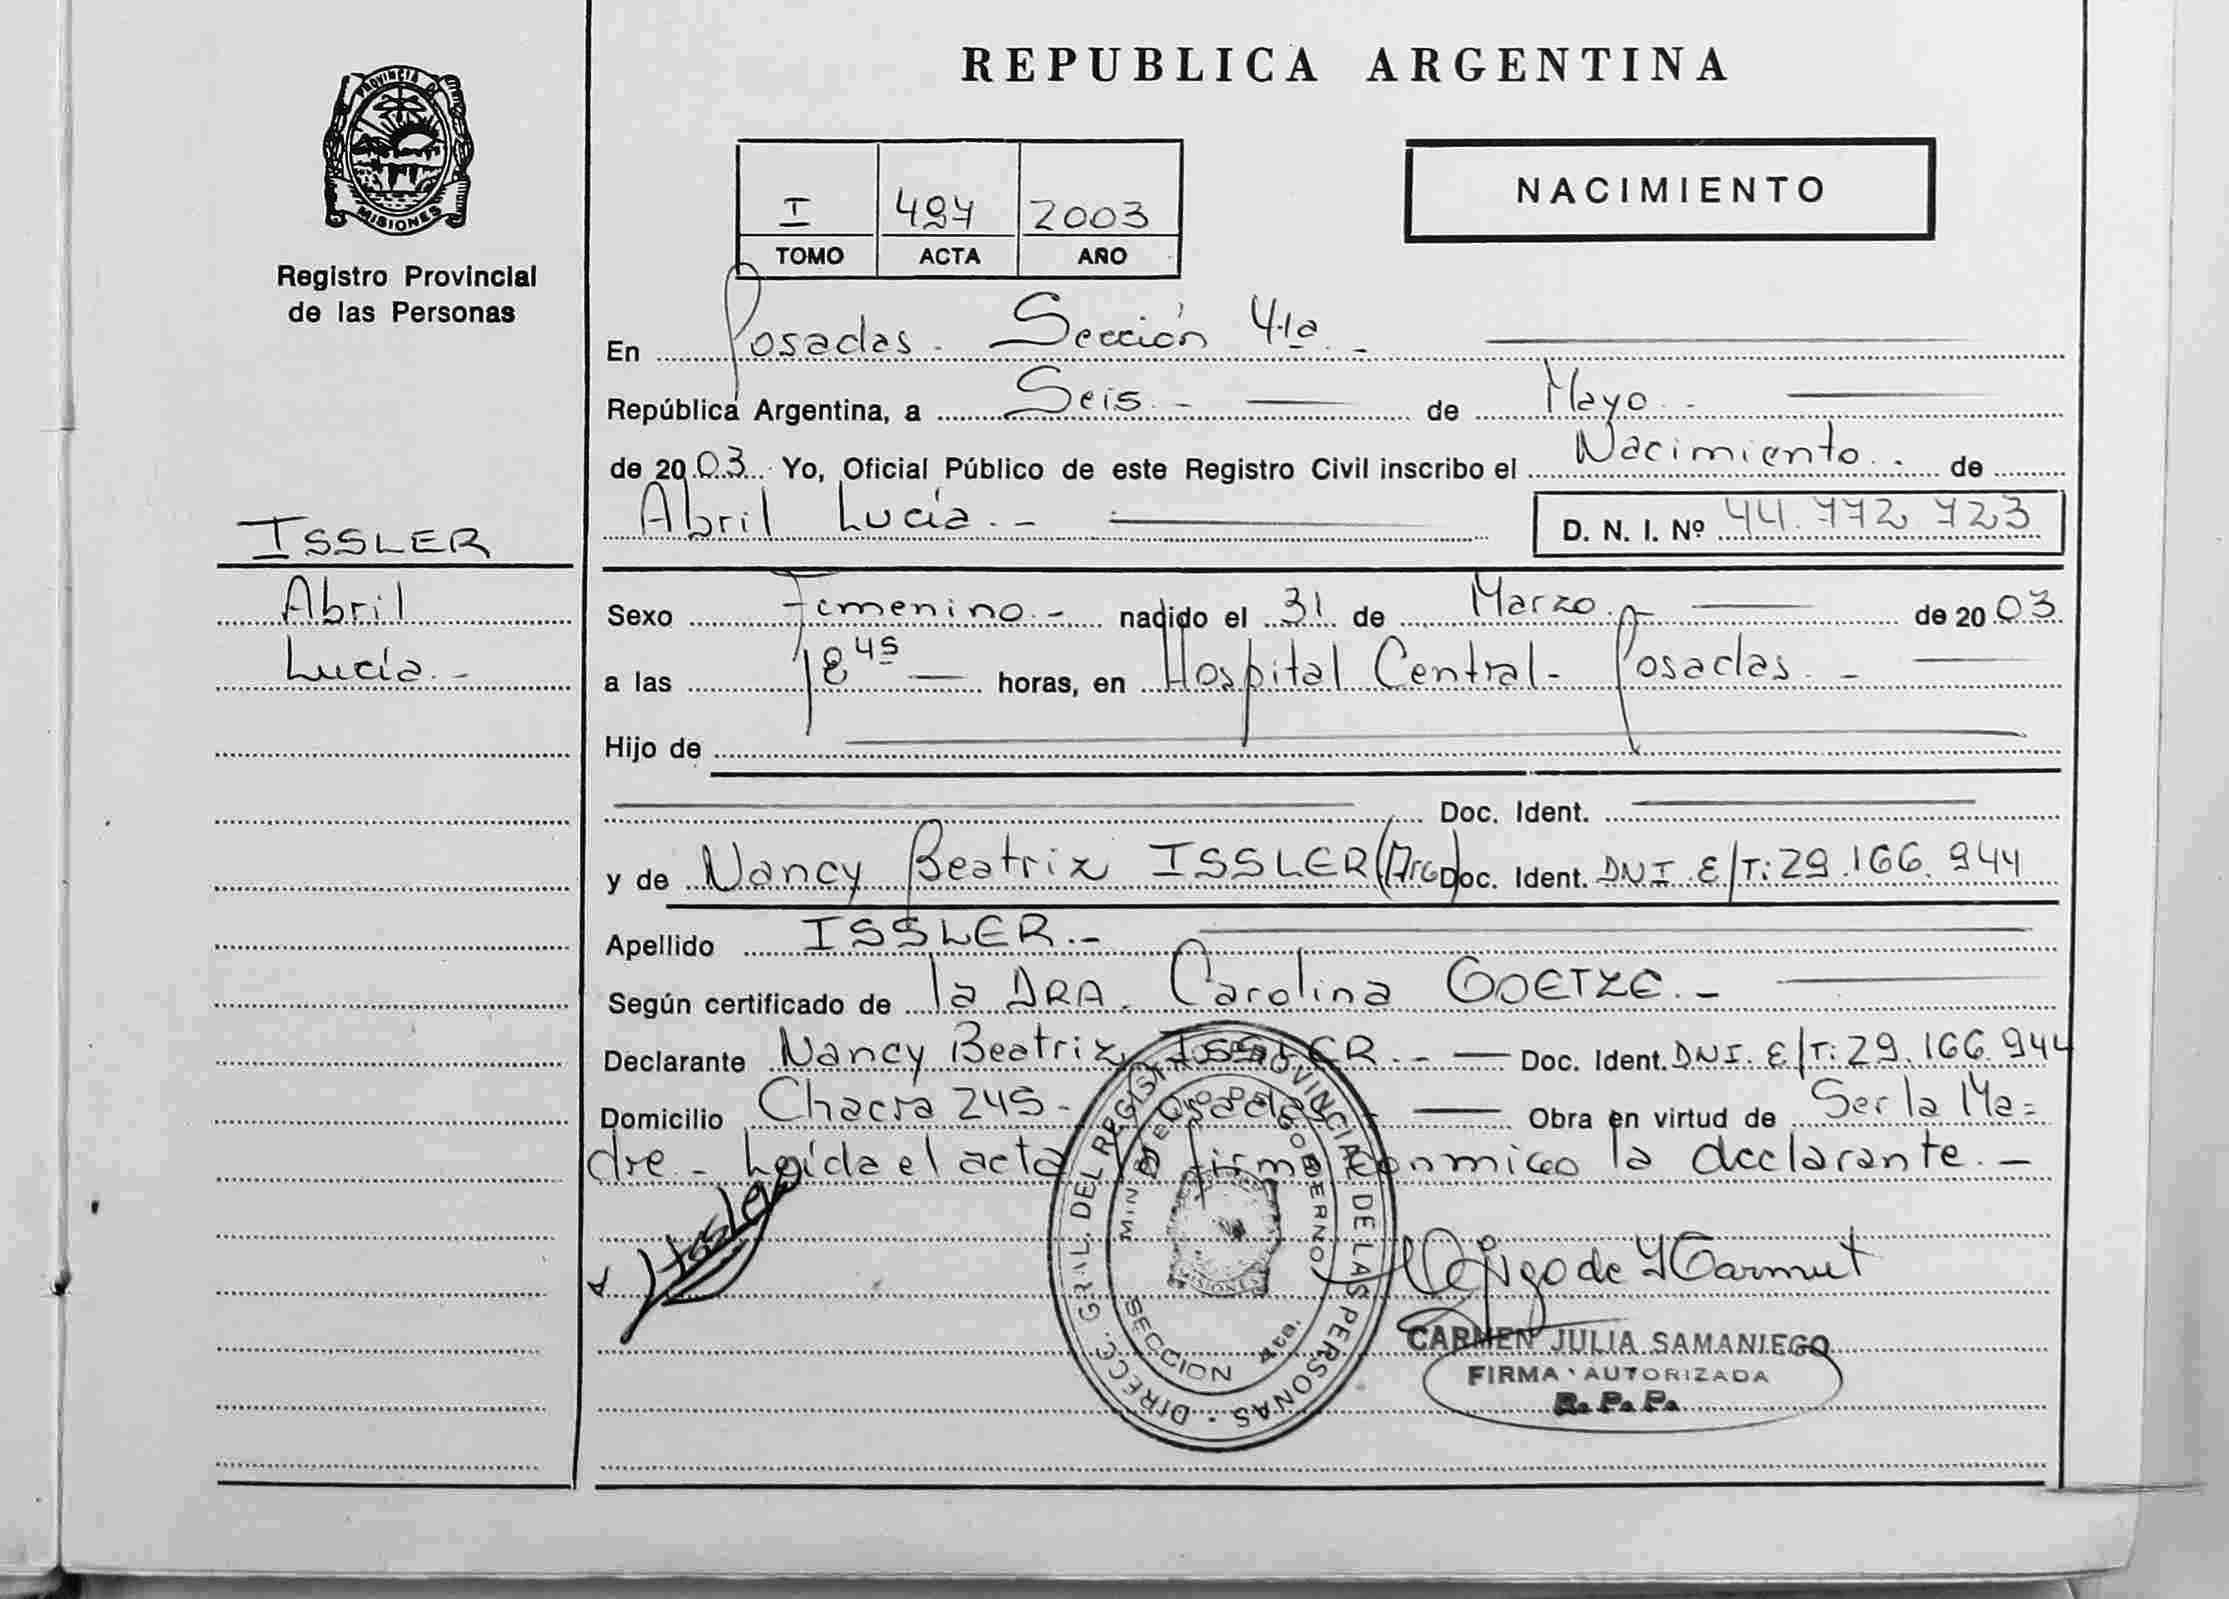 REPUBLICA ARGENTINA
PROVINCIA DE MISIONES
Registro Provincial
de las Personas
NACIMIENTO
I 497 2003
TOMO ACTA AÑO
En Posadas - Sección 4ta. -
República Argentina, a Seis - de Mayo -
de 2003 Yo, Oficial Público de este Registro Civil inscribo el Nacimiento. de
Abril Lucía. - D. N. I. Nº 44.772.723
ISSLER
Abril
Lucía. -
Sexo Femenino. - nacido el 31 de Marzo. - de 2003
a las 18 45 horas, en Hospital Central - Posadas. -
Hijo de
Doc. Ident.
y de Nancy Beatriz ISSLER (Arg) Doc. Ident. DNI. E/T: 29.166.944
Apellido ISSLER. -
Según certificado de la DRA. Carolina GOETZE. -
Declarante Nancy Beatriz ISSLER. - Doc. Ident. DNI. E/T: 29.166.944
Domicilio Chacra 245 - Posadas - Obra en virtud de Ser la Ma=
dre - Leída el acta la firma conmigo la declarante. -
DIRECC. GRAL. DEL REGISTRO PROVINCIAL DE LAS PERSONAS
MINISTERIO DE GOBIERNO
SECCION 4ta.
CARMEN JULIA SAMANIEGO
FIRMA AUTORIZADA
R. P. P.